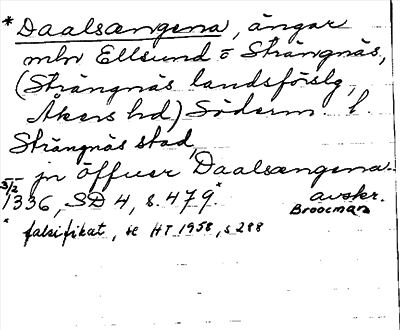 *Daalsængena, ängar
mln Ellsund o Strängnäs,
(Strängnäs landsförslg,
Åkers hd) Söderm. l.
Strängnäs stad,
jn öffuer Daalsængena
5/2 1336, SD 4, s. 479.* avskr.
Broocman
* falsifikat, se HT 1958, s 288